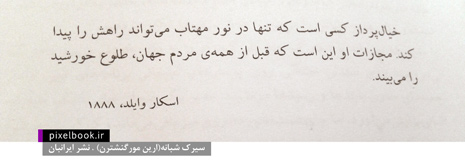 خیال‌پرداز کسی است که تنها در نور مهتاب می‌تواند راهش را پیدا
کند. مجازات او این است که قبل از همه‌ی مردم جهان، طلوع خورشید
را می‌بیند.
اسکار وایلد، ۱۸۸۸
pixelbook.ir
سیرک شبانه(ارین مورگنشترن) . نشر ایرانبان